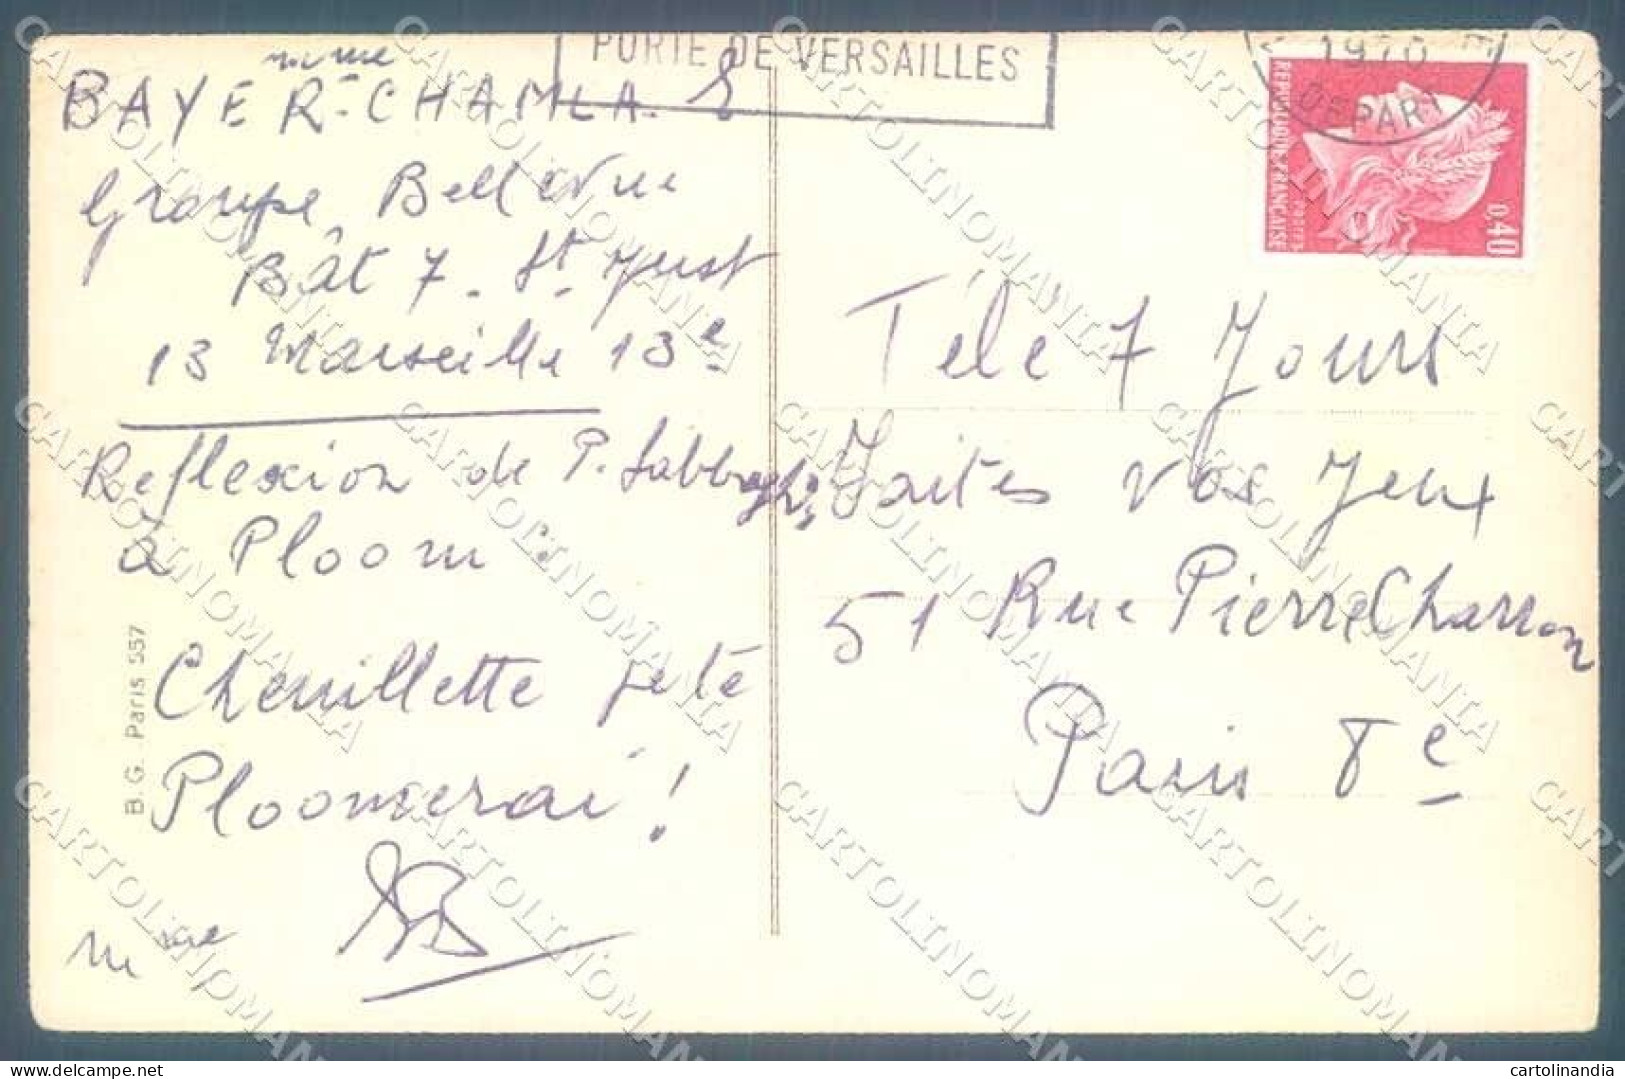 PORTE DE VERSAILLES
1970
DEPART
REPUBLIQUE FRANÇAISE
POSTES
0,40
Mme
BAYER-CHAMLA. S
Groupe Bellevue
Bât 7. St. Just
13 Marseille 13e
Reflexion de P. Sabbagh;
à Ploom:
Chenillette jeté
Ploomerai!
Mme
Télé 7 Jours
Faites vos Jeux
51 Rue Pierre Charron
Paris 8e
B. G. Paris 557
CARTOLINOMANIA
cartolinandia